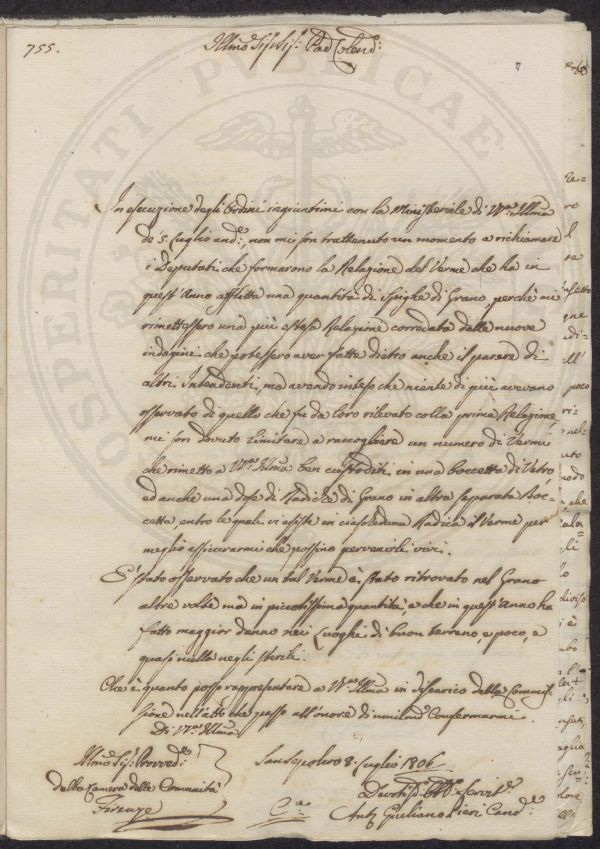 755.
Illmo Sig: Sig: Pad: Colend:
In esecuzione degli Ordini ingiuntimi con la Ministeriale di V.S. Illma
de' 5. Luglio and:, non mi son trattenuto un momento a richiamare
i Deputati, che formarono la Relazione del Verme che ha in
quest'Anno afflitto una quantità di Spighe di Grano, perchè mi
rimettessero una più estesa Relazione corredata dalle nuove
indagini che potessero aver fatte dietro anche il parere di
altri Intendenti, ma avendo inteso che niente di più avevano
osservato di quello che fu da loro rilevato colla prima Relazione,
mi son dovuto limitare a raccogliere un numero di Vermi
che rimetto a V.S. Illma ben custoditi in una boccetta di Vetro,
ed anche una dose di Radiche di Grano in altra separata Boc=
cetta, entro le quali vi esiste in ciascheduna Radica il Verme per
meglio assicurarmi che possino pervenirli vivi.
E' stato osservato che un tal Verme è stato ritrovato nel Grano
altre volte ma in piccolissima quantità, e che in quest'Anno ha
fatto maggior danno nei Luoghi di buon terreno, e poco, o
quasi nulla negli sterili.
Che è quanto posso rappresentare a V.S. Illma in discarico della Commis=
sione nell'atto che passo all'onore di umilmte Confermarmi
Di V.S. Illma
Illmo Sig: Provved:
della Camera delle Comunità
Firenze
San Sepolcro 8. Luglio 1806
Ant: Giuliano Pieri Canc:
PROSPERITATI PUBLICAE